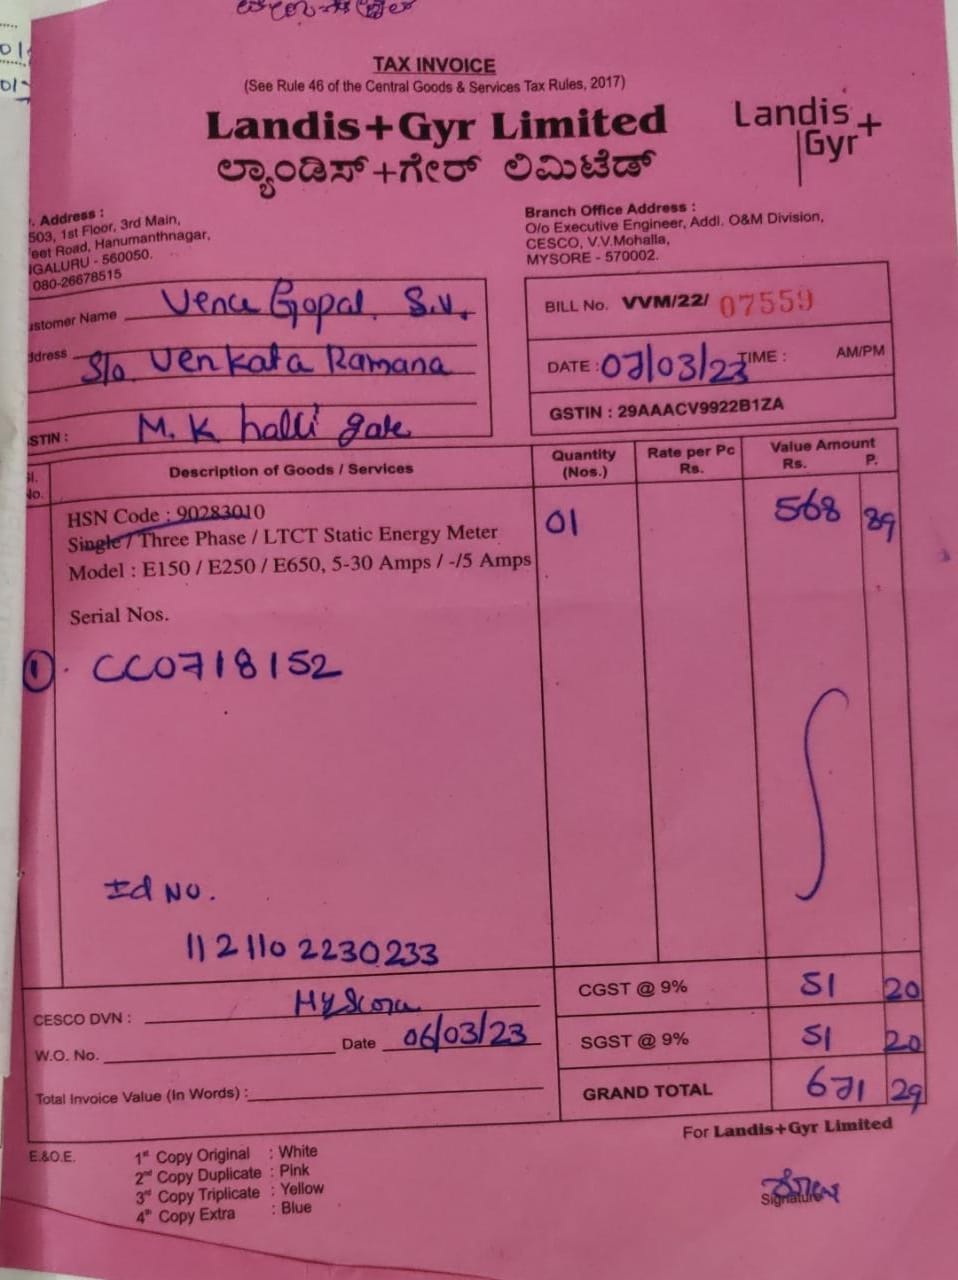 TAX INVOICE
(See Rule 46 of the Central Goods & Services Tax Rules, 2017)
Landis+Gyr Limited
ಲ್ಯಾಂಡಿಸ್+ಗೇರ್ ಲಿಮಿಟೆಡ್
Landis
Gyr+
. Address :
503, 1st Floor, 3rd Main,
eet Road, Hanumanthnagar,
GALURU - 560050.
080-26678515
Branch Office Address :
O/o Executive Engineer, Addl. O&M Division,
CESCO, V.V.Mohalla,
MYSORE - 570002.
ustomer Name Venu Gopal. S.V.
ddress S/o Venkata Ramana
STIN : M. K halli gate
BILL No. VVM/22/ 07559
DATE : 07/03/23 TIME : AM/PM
GSTIN : 29AAACV9922B1ZA
Sl. No. Description of Goods / Services Quantity (Nos.) Rate per Pc Rs. Value Amount Rs. P.
HSN Code : 90283010 01 568 89
Single / Three Phase / LTCT Static Energy Meter
Model : E150 / E250 / E650, 5-30 Amps / -/5 Amps
Serial Nos.
1. CC0718152
Id No.
112110 2230233
CESCO DVN : Mysore
W.O. No. Date 06/03/23
Total Invoice Value (In Words) :
CGST @ 9% 51 20
SGST @ 9% 51 20
GRAND TOTAL 671 29
For Landis+Gyr Limited
E.&O.E.
1st Copy Original : White
2nd Copy Duplicate : Pink
3rd Copy Triplicate : Yellow
4th Copy Extra : Blue
Signature